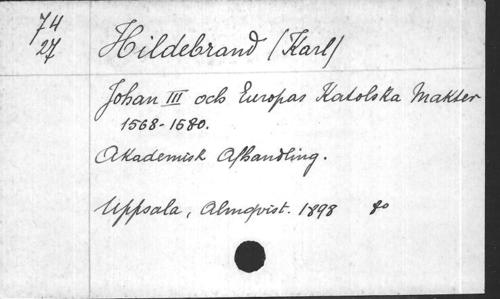 74
27
Hildebrand (Karl)
Johan III och Europas Katolska Makter
1568-1580.
Akademisk Afhandling.
Uppsala, Almqvist. 1898 8o